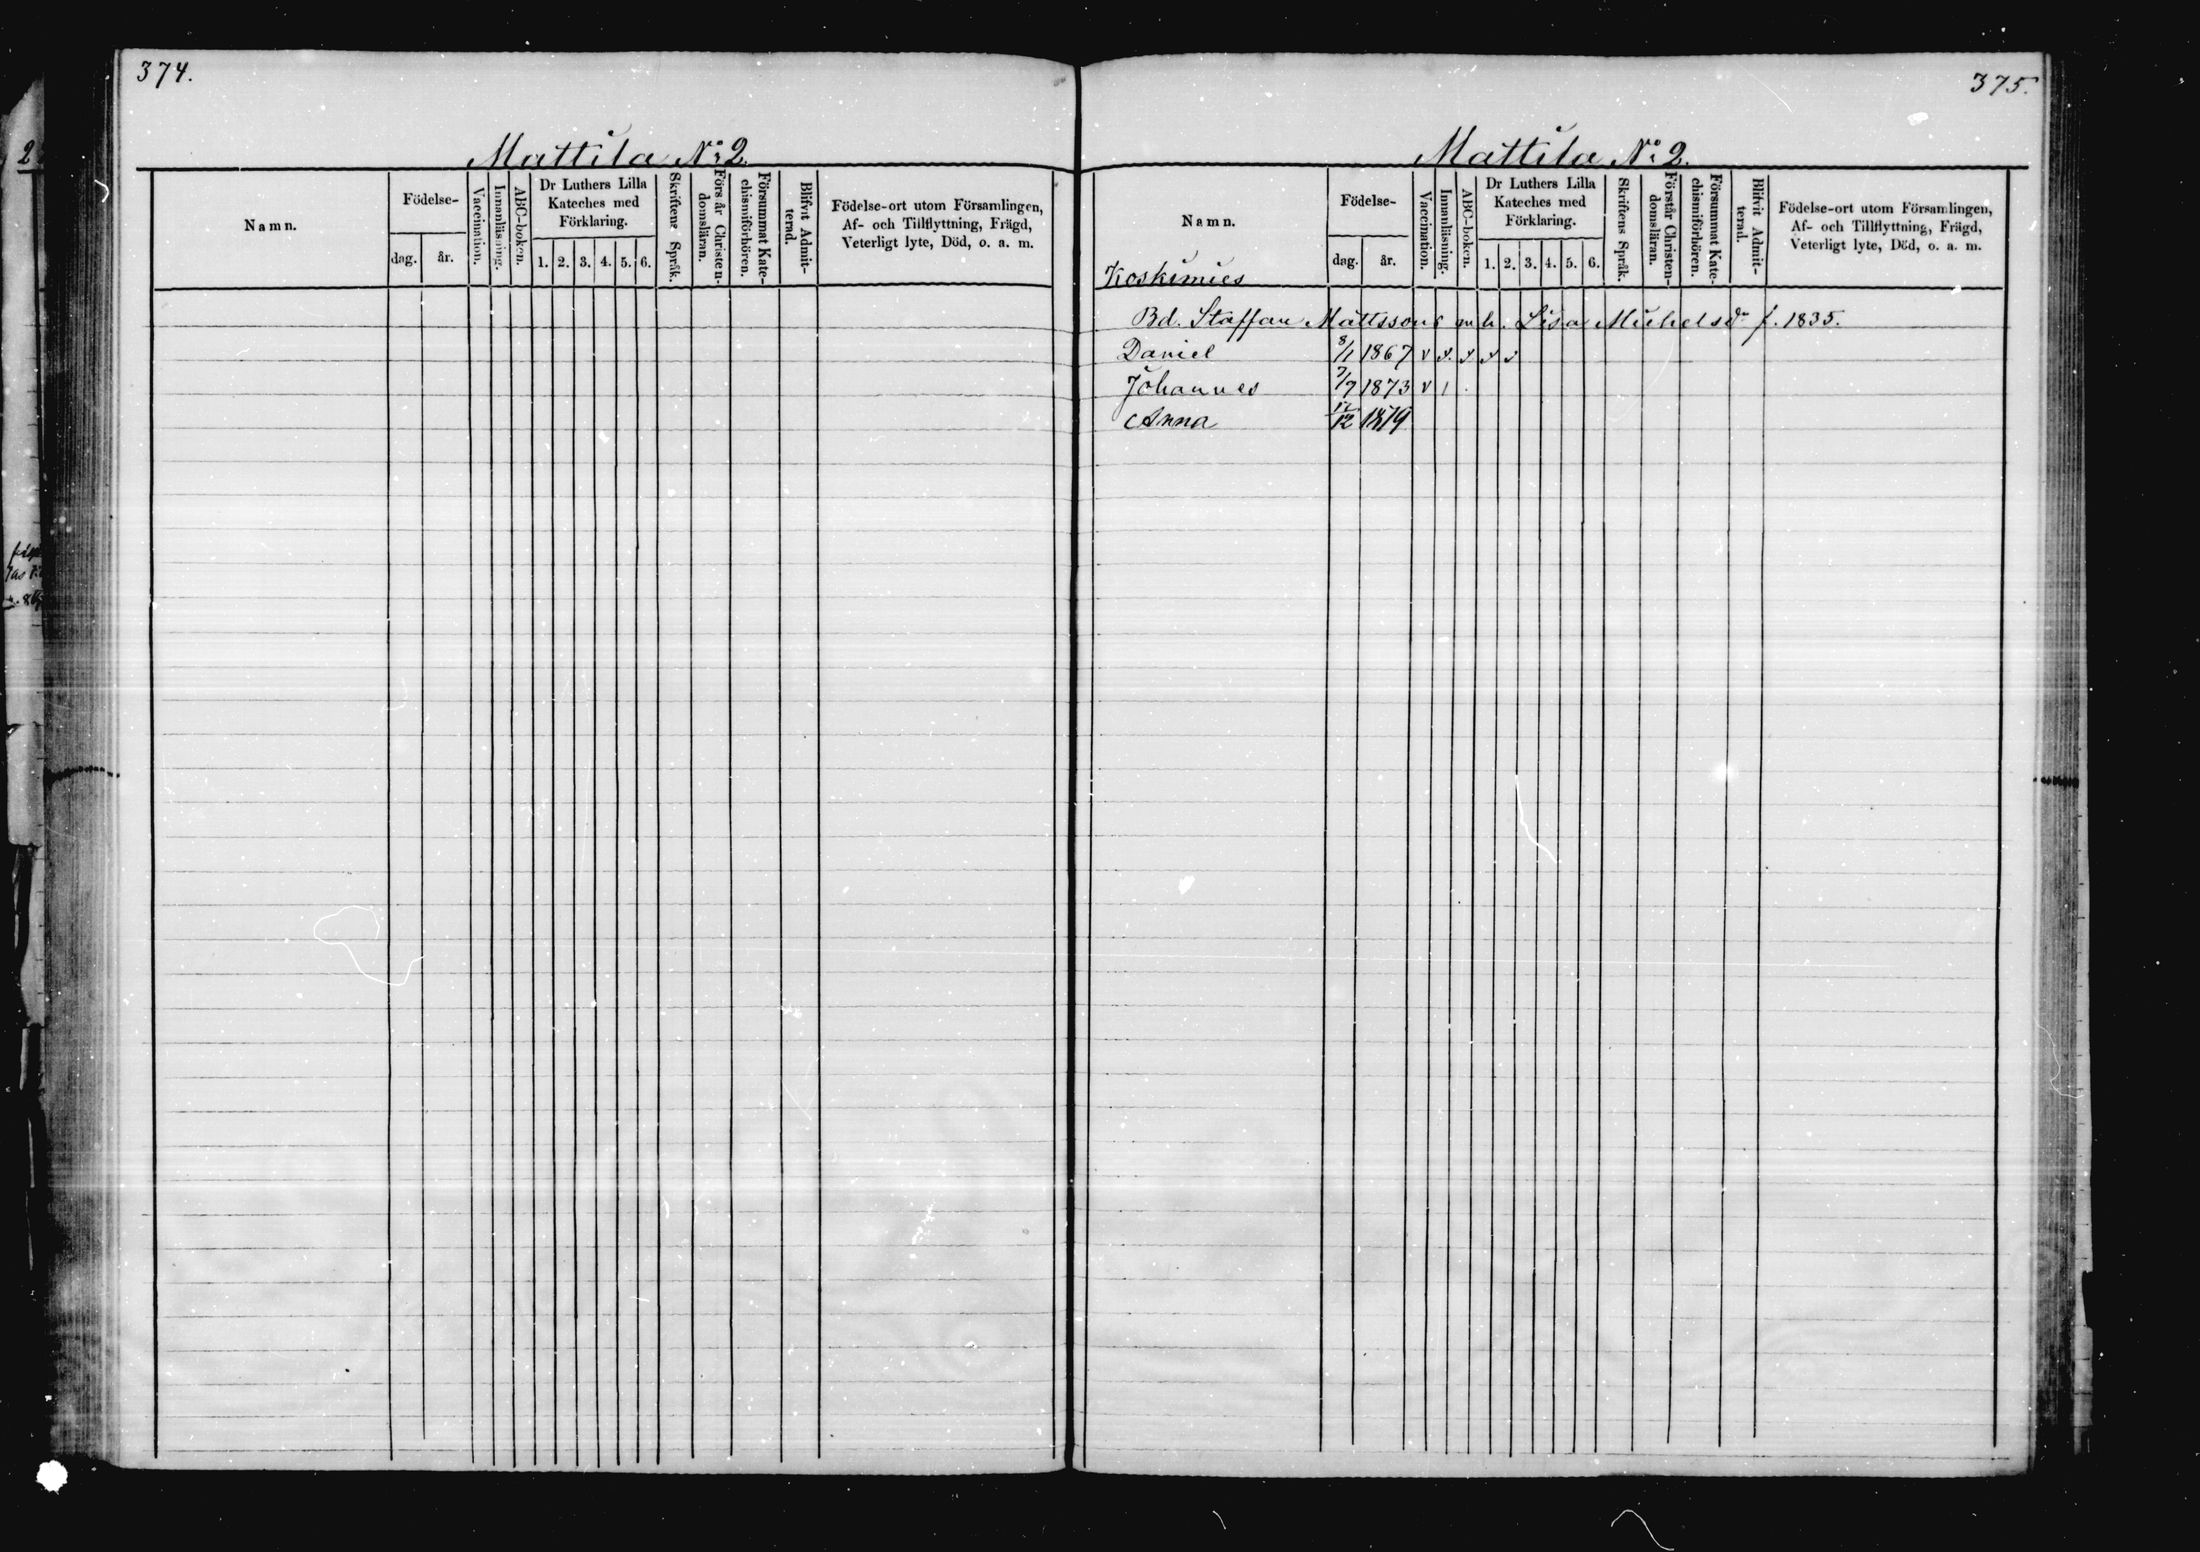 374.
Mattila No 2.
Namn.
Födelse-
dag. år.
Vaccination.
Innanläsning.
ABC-boken.
Dr Luthers Lilla
Kateches med
Förklaring.
1. 2. 3. 4. 5. 6.
Skriftens Språk.
Förs år Christen-
domsläran.
Försummat Kate-
chismiförhören.
Blifvit Admit-
terad.
Födelse-ort utom Församlingen,
Af- och Tillflyttning, Frägd,
Veterligt lyte, Död, o. a. m.
375.
Mattila No 2.
Namn.
Födelse-
dag. år.
Vaccination.
Innanläsning.
ABC-boken.
Dr Luthers Lilla
Kateches med
Förklaring.
1. 2. 3. 4. 5. 6.
Skriftens Språk.
Förstår Christen-
domsläran.
Försummat Kate-
chismiförhören.
Blifvit Admit-
terad.
Födelse-ort utom Församlingen,
Af- och Tillflyttning, Frägd,
Veterligt lyte, Död, o. a. m.
Koskimies
Bd. Staffan Mattssons m h. Lisa Michelsdr f. 1835.
Daniel 8/1 1867 v
Johannes 7/7 1873 v
Anna 12 1879